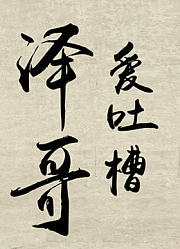 泽哥
爱吐槽